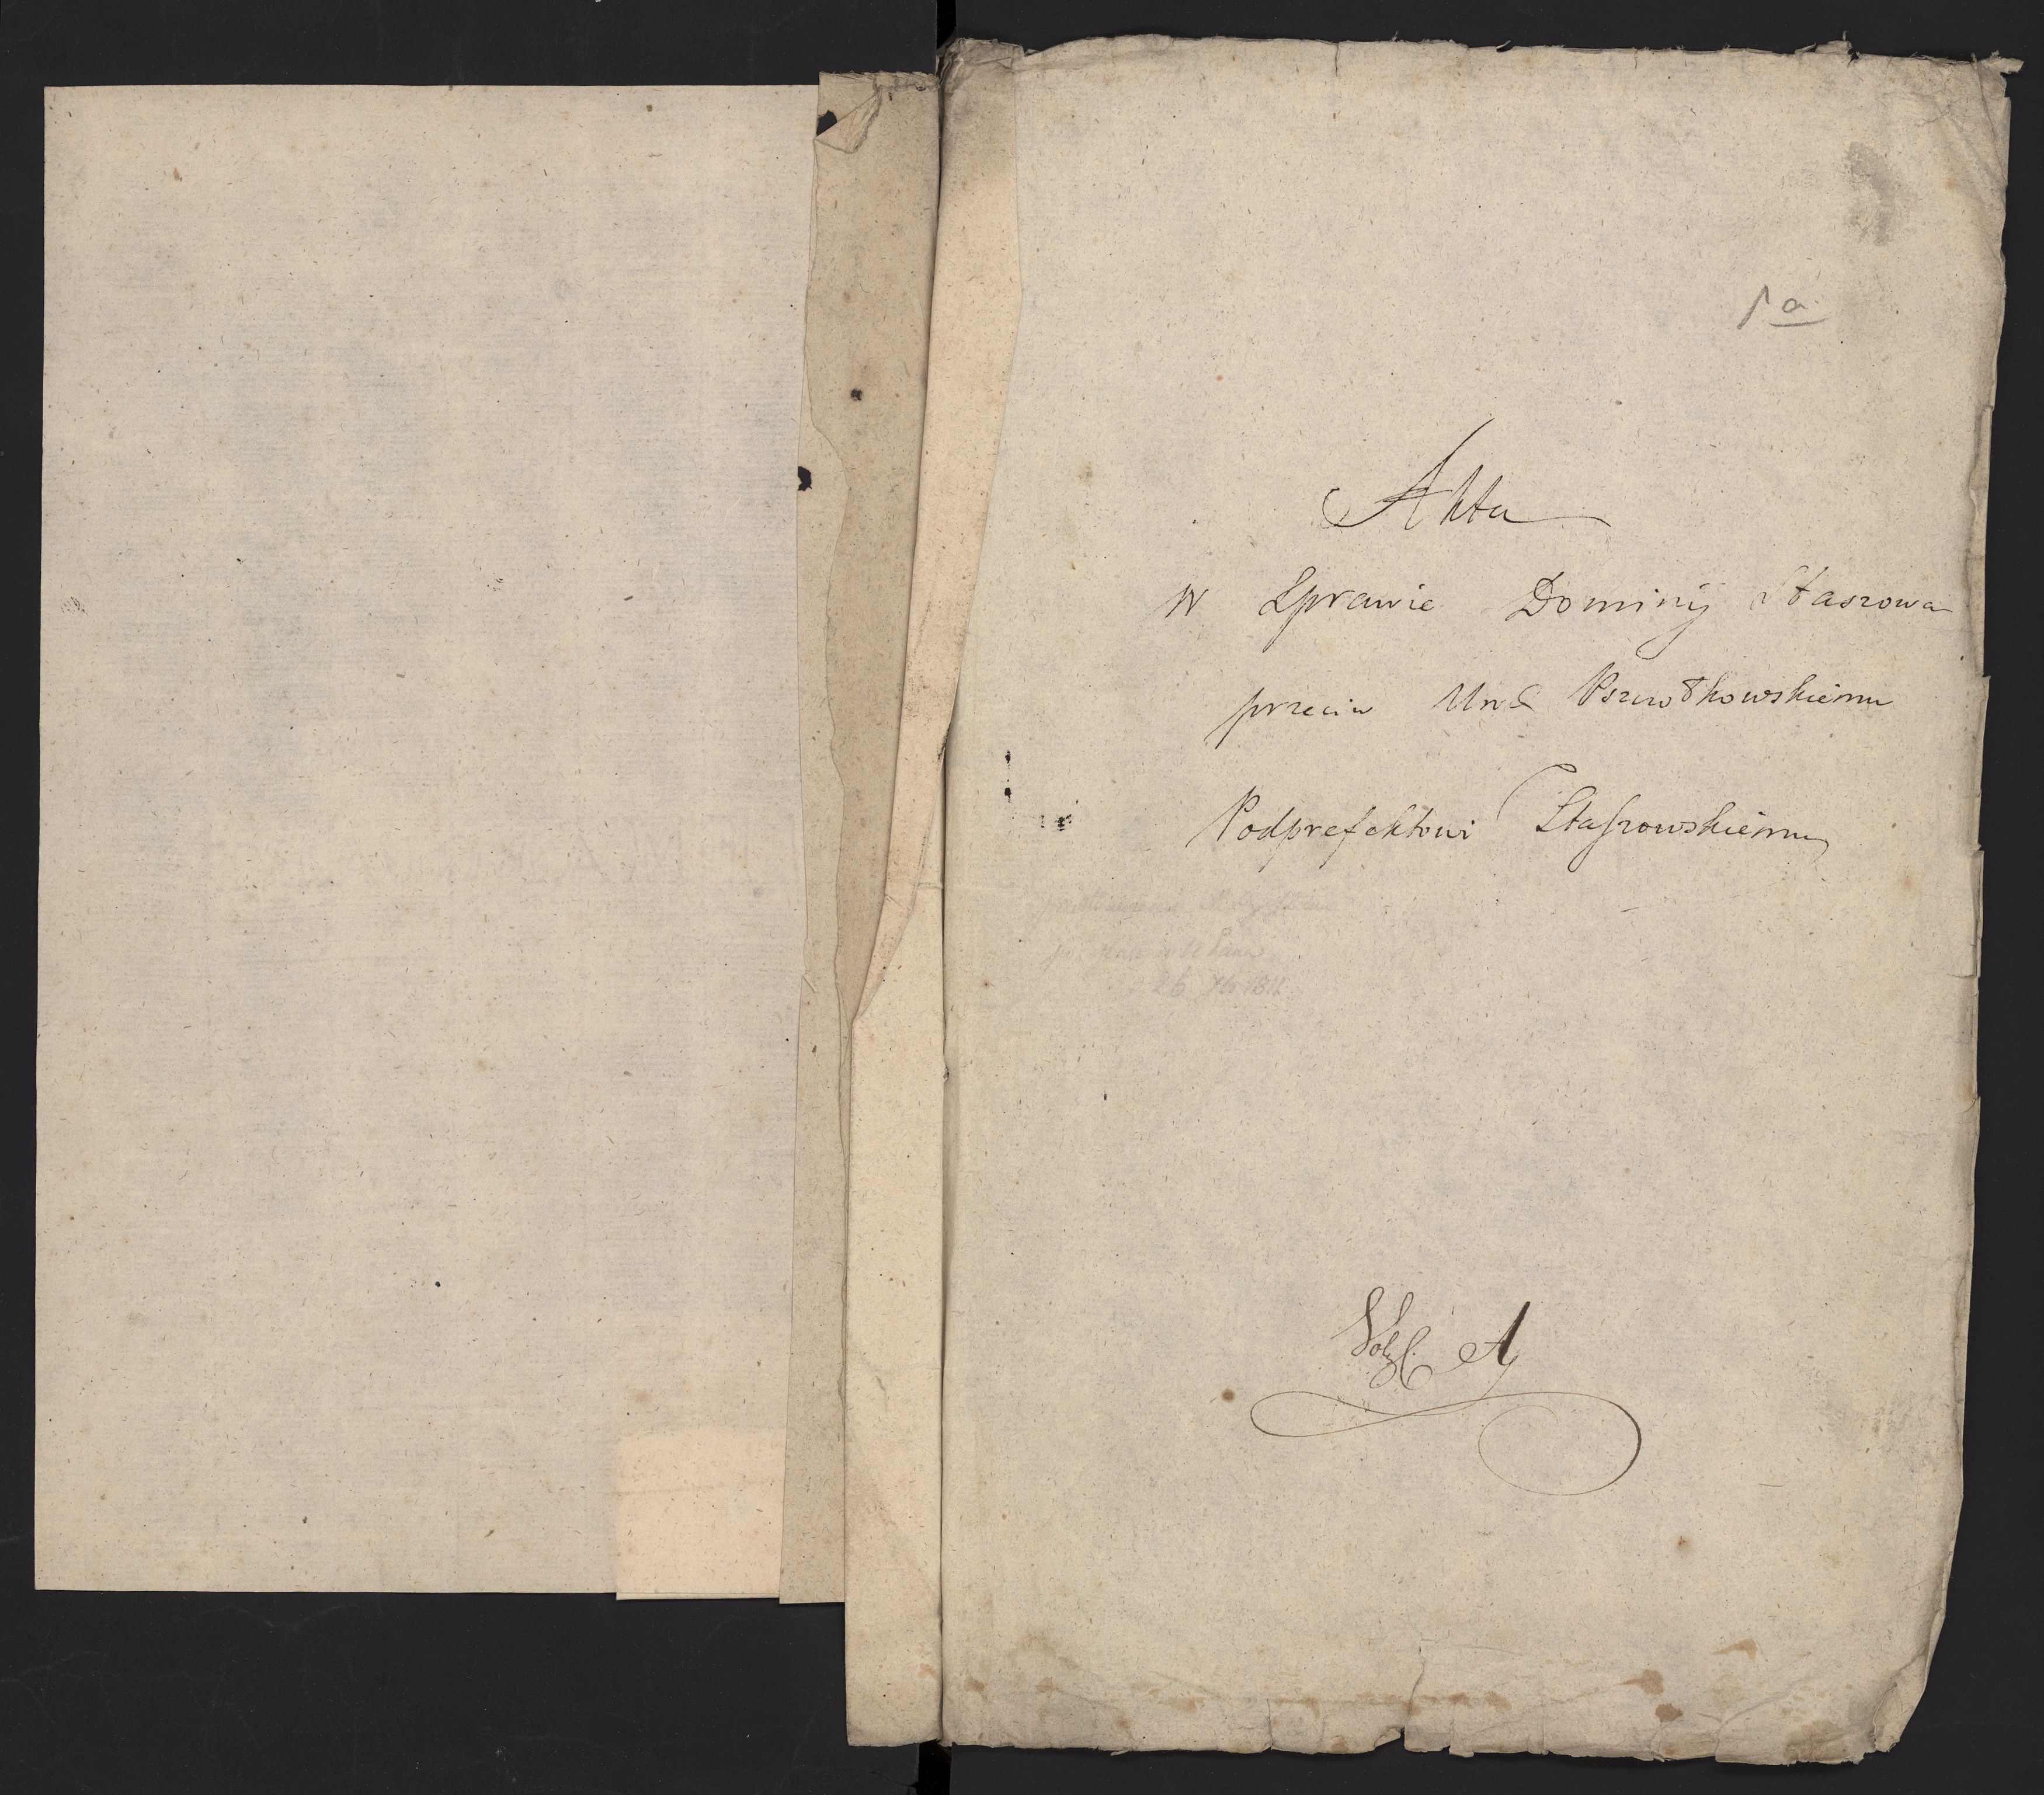 1 a
Akta
W Sprawie Dominij Staszowa
przeciw Urod Pszczołkowskiemu
Podprefektowi Staszowskiemu
26 Xb 1811
A